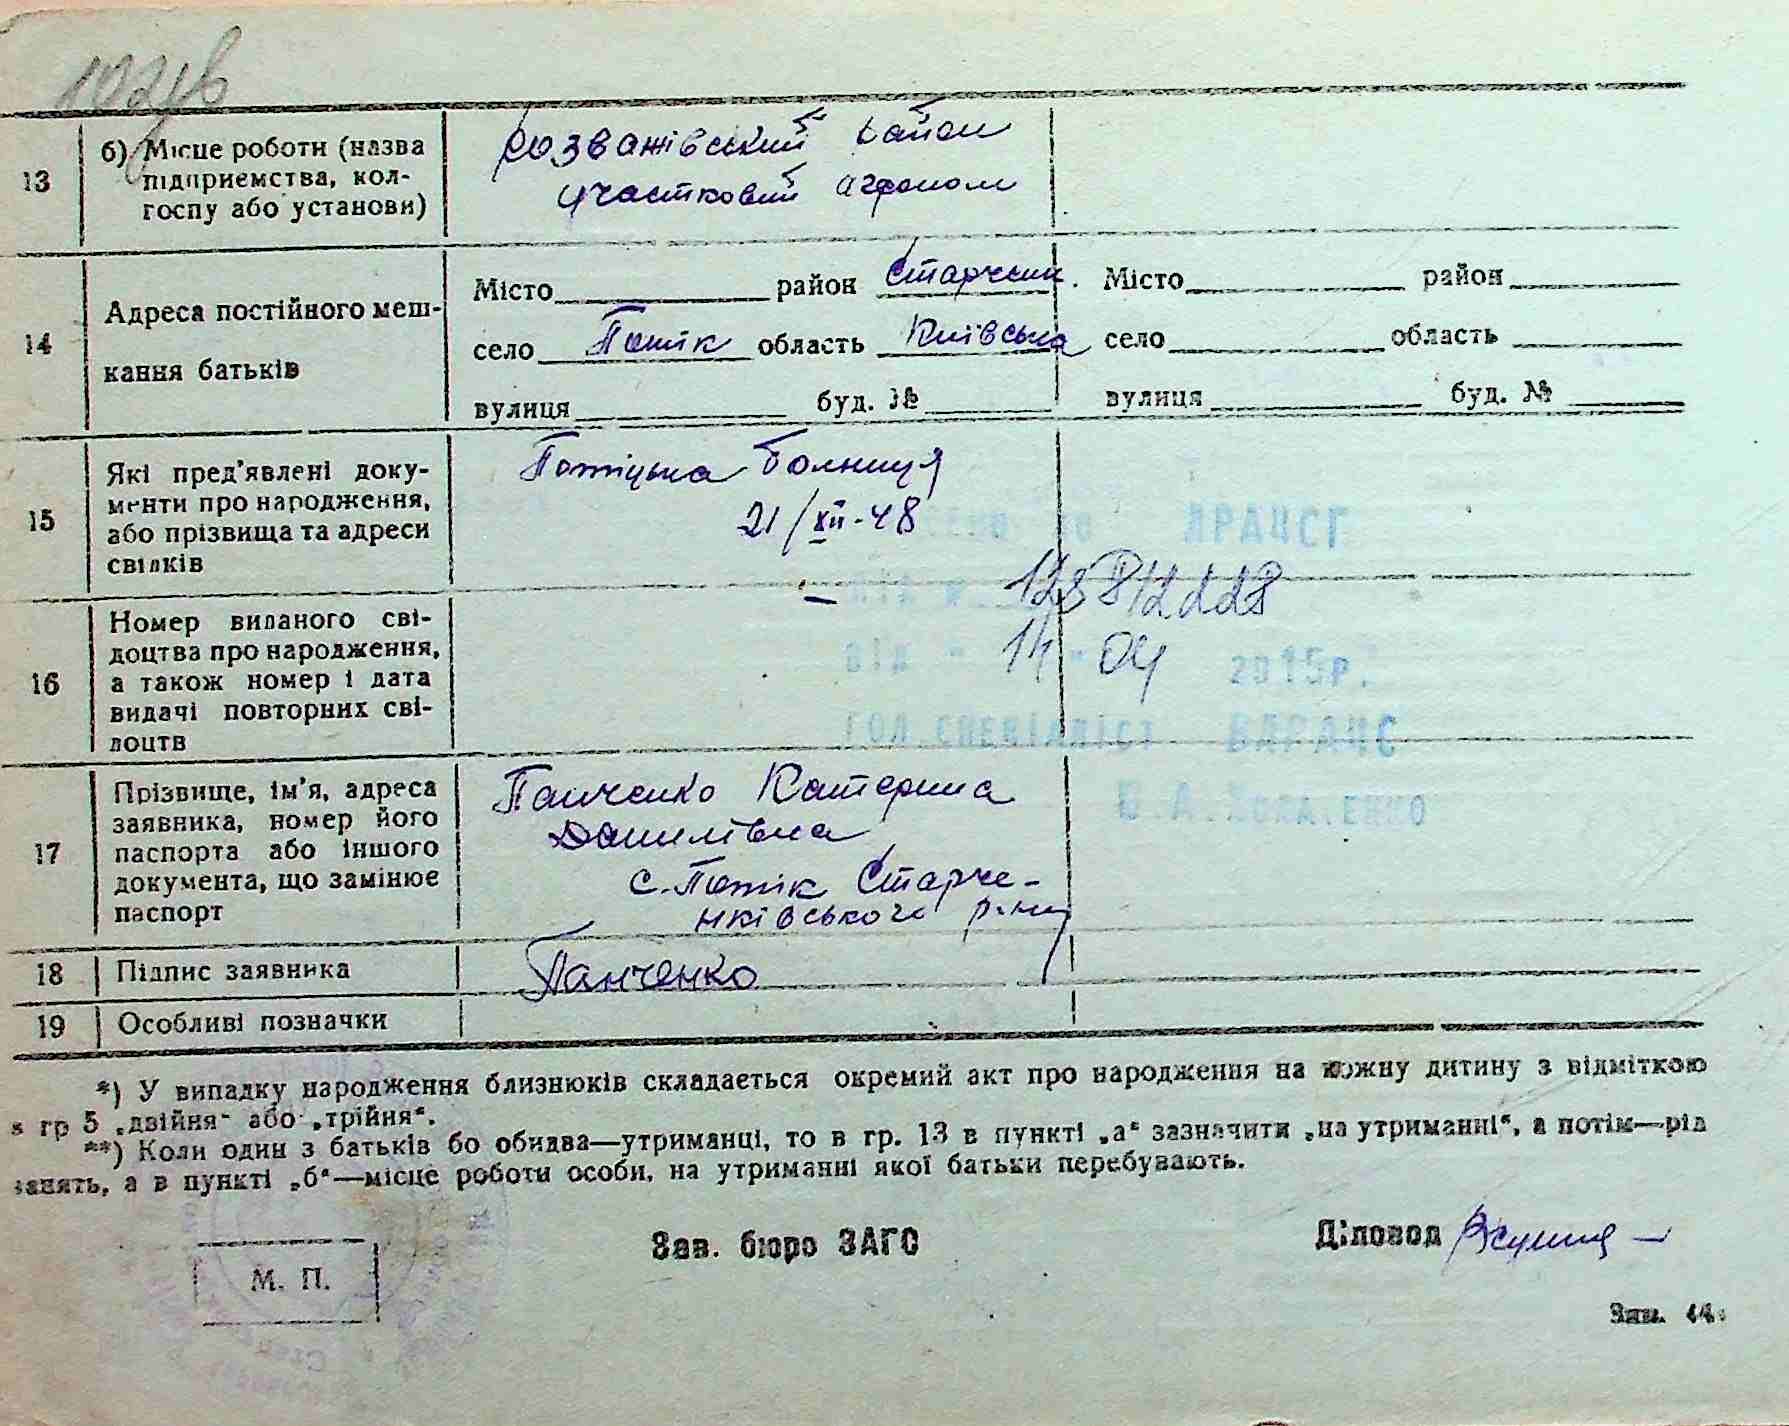 13
б) Місце роботи (назва
підприємства, кол-
госпу або установи)
Розважівський район
участковий агроном
14
Адреса постійного меш-
кання батьків
Місто район Старченк. Місто район
село Потік область Київська село область
вулиця буд. № вулиця буд. №
15
Які пред'явлені доку-
менти про народження,
або прізвища та адреси
свідків
Потіцька болниця
21/XII-48
ДРАЦСГ
16
Номер виданого сві-
доцтва про народження,
а також номер і дата
видачі повторних сві-
доцтв
від " 14 " 04 2015р.
ГОЛ.СПЕЦІАЛІСТ ВДРАЦС
17
Прізвище, ім'я, адреса
заявника, номер його
паспорта або іншого
документа, що замінює
паспорт
Панченко Катерина
Данилівна
с. Потік Старче-
нківського р-ну
18 Підпис заявника Панченко
19 Особливі позначки
*) У випадку народження близнюків складається окремий акт про народження на кожну дитину з відміткою
в гр 5 „двійня“ або „трійня“.
**) Коли один з батьків бо обидва—утриманці, то в гр. 13 в пункті „а“ зазначити „на утриманні“, а потім—рід
занять, а в пункті „б“—місце роботи особи, на утриманні якої батьки перебувають.
Зав. бюро ЗАГС
Діловод
М. П.